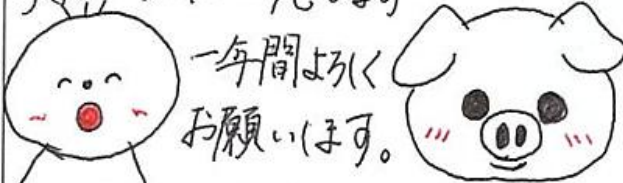 一年間よろしく
お願いします。